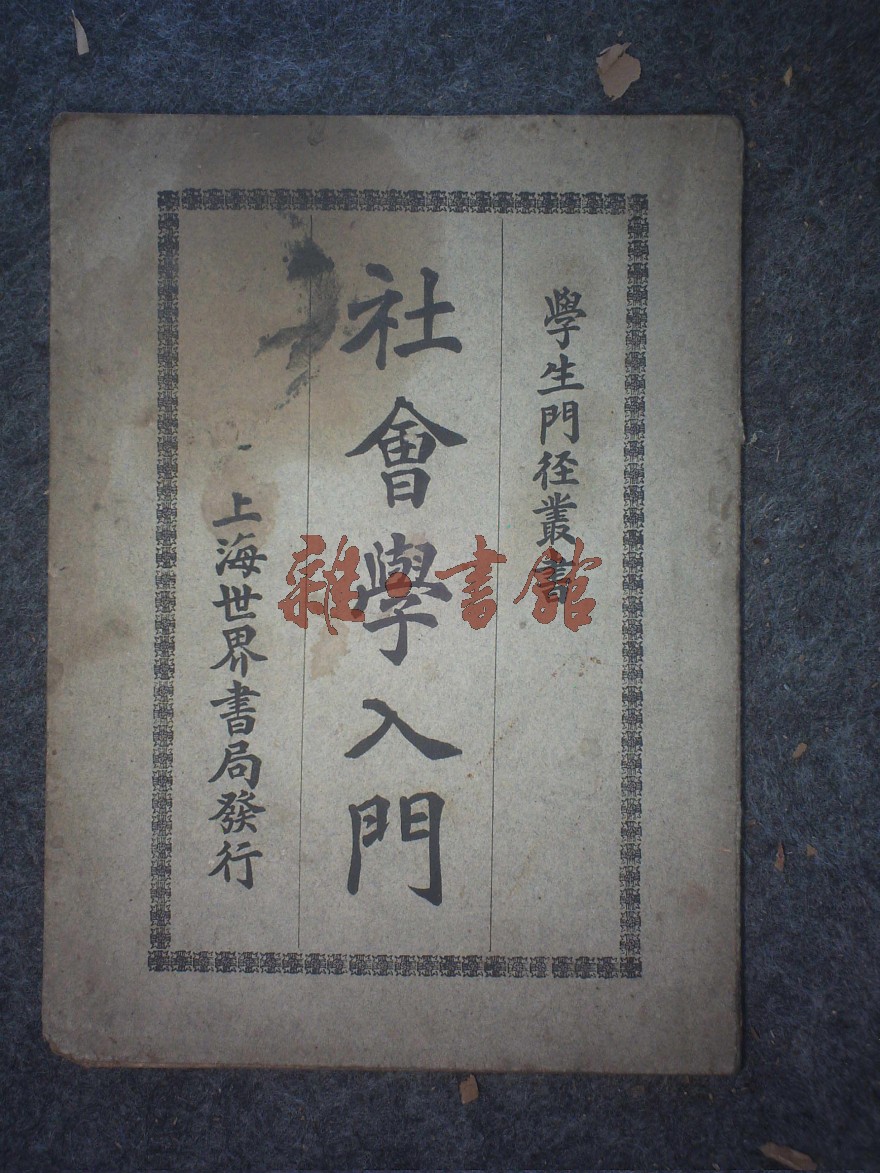 學生門径叢書
社會學入門
上海世界書局發行
雜·書館